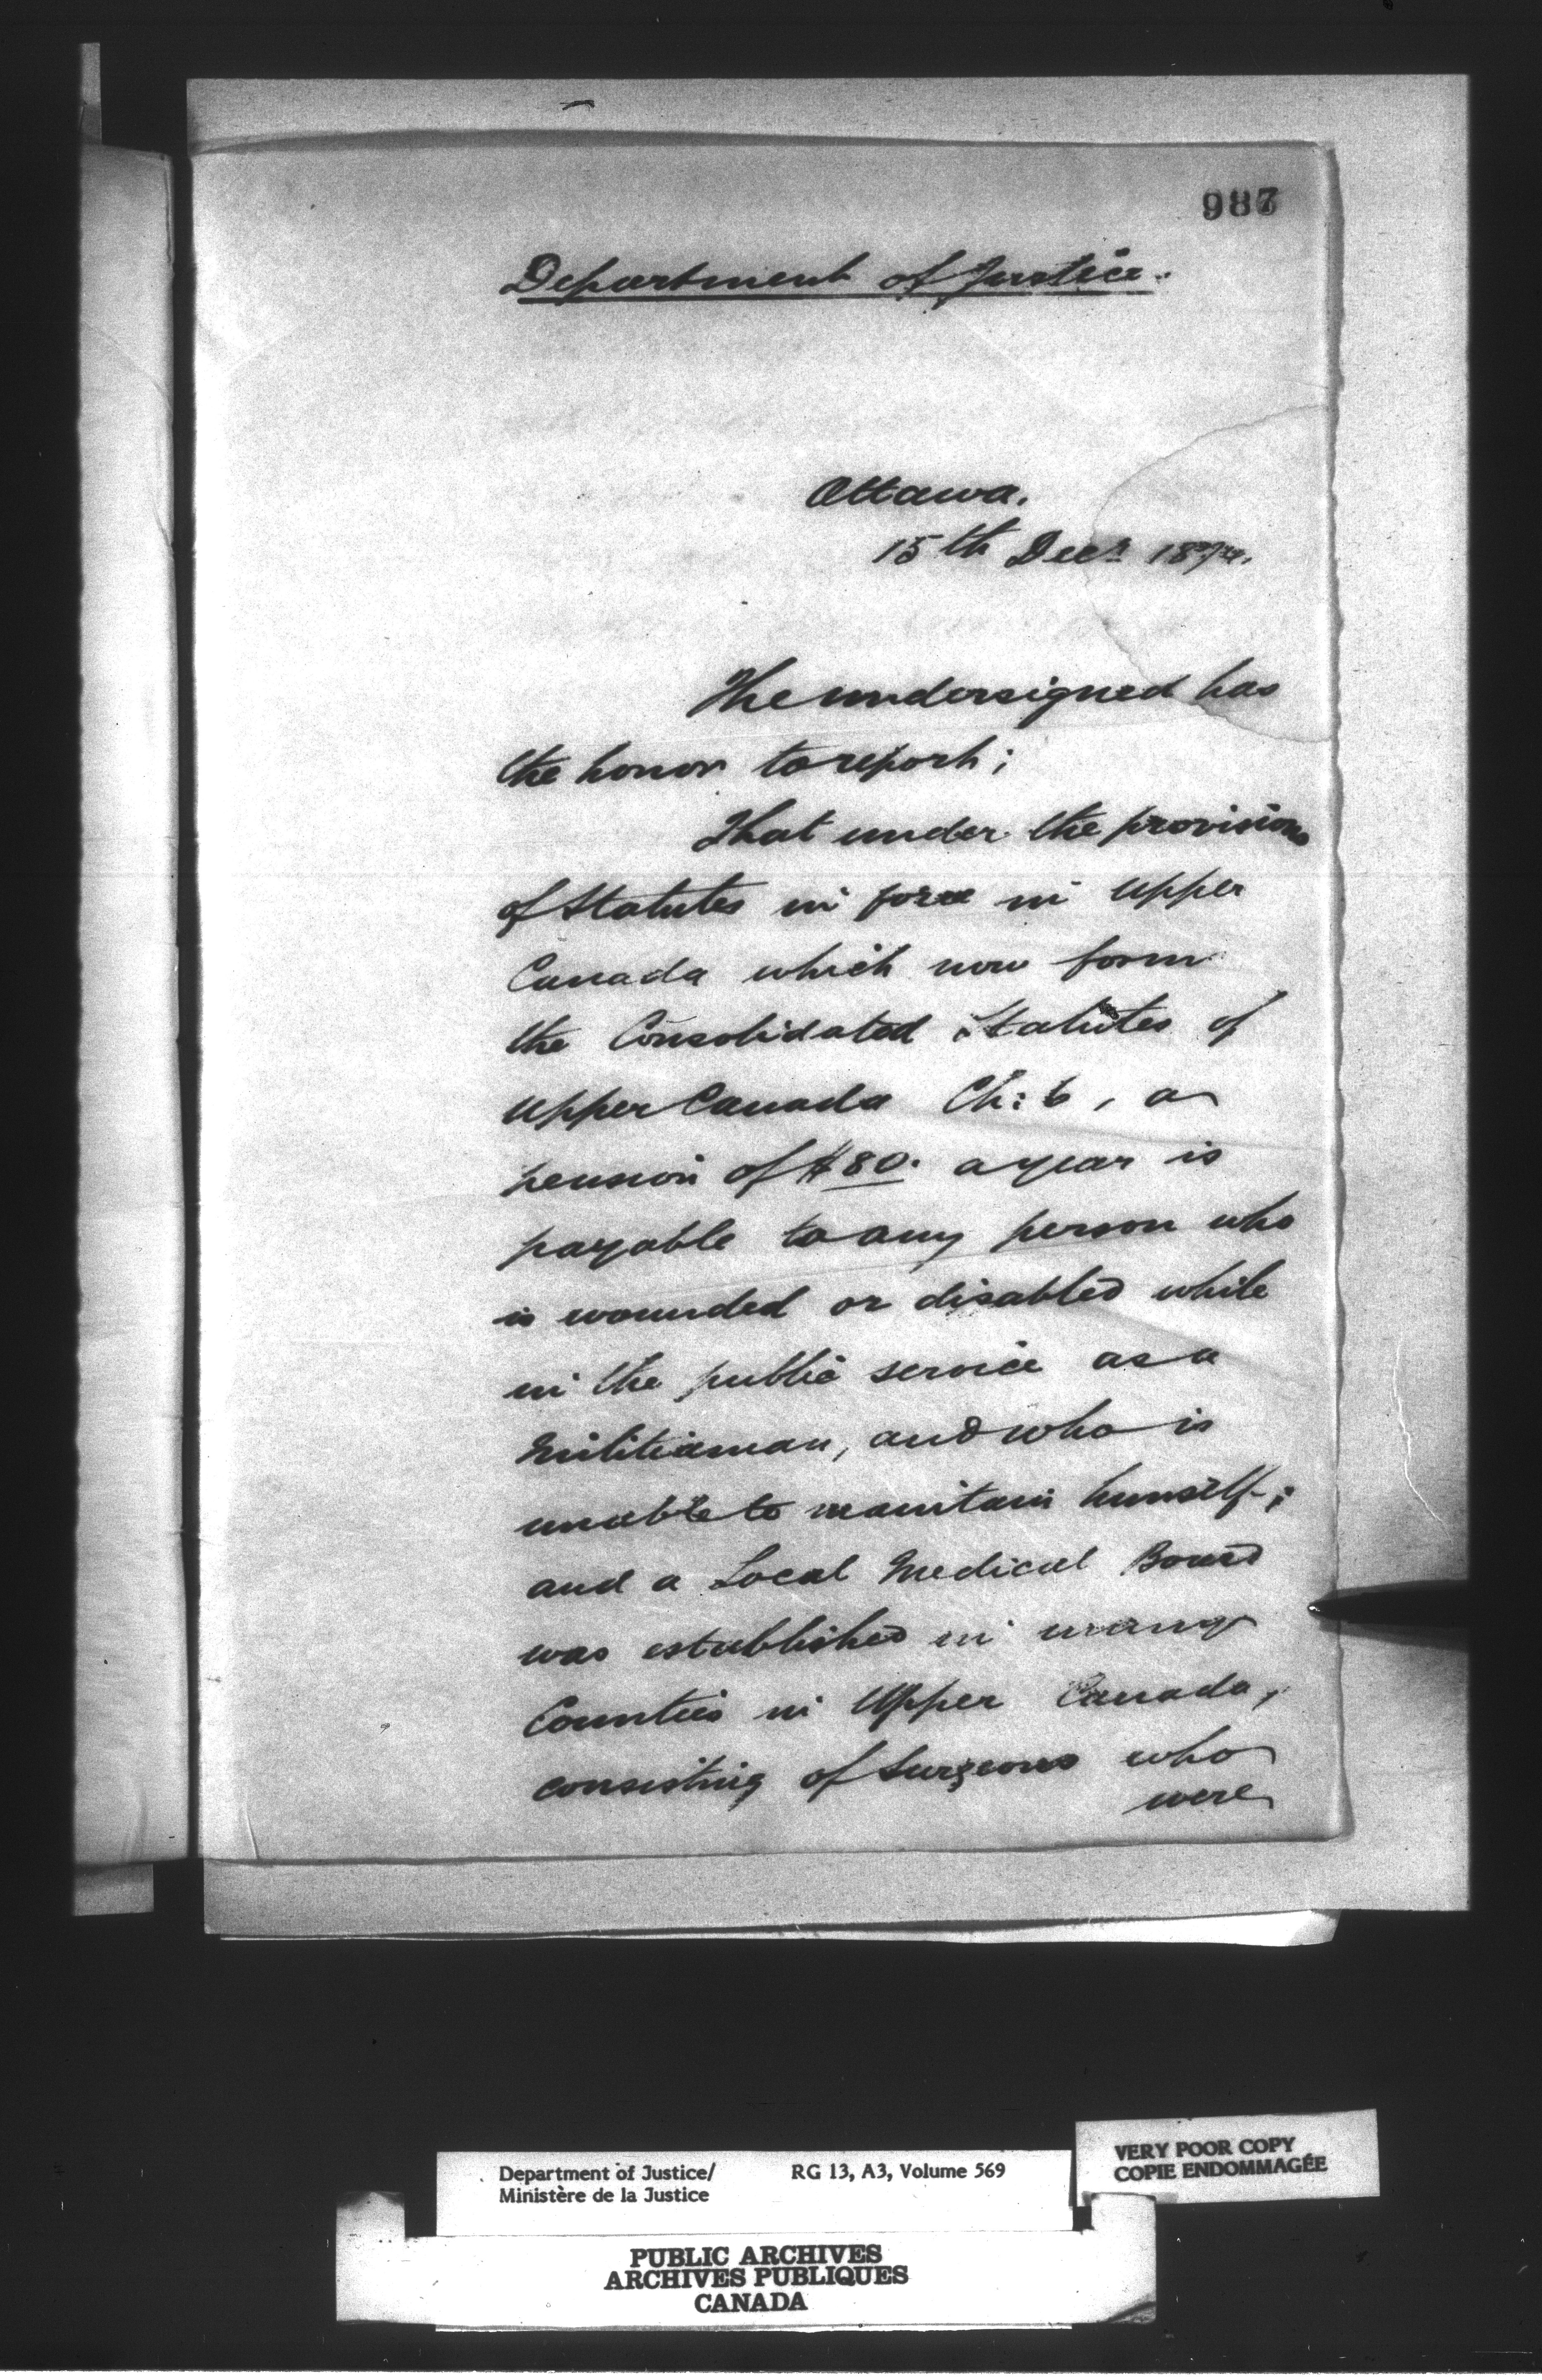 987
Department of Justice.
Ottawa.
15th Decr.
The undersigned has
the honor to report;
That under the provisions
of Statutes in force in Upper
Canada which now form
the Consolidated Statutes of
Upper Canada Ch: 6, a
pension of $80. a year is
payable to any person who
is wounded or disabled while
in the public service as a
Militiaman, and who is
unable to maintain himself;
and a Local Medical Board
was established in many
Counties in Upper Canada,
consisting of Surgeons who
were
Department of Justice/ RG 13, A3, Volume 569
Ministère de la Justice
VERY POOR COPY
COPIE ENDOMMAGÉE
PUBLIC ARCHIVES
ARCHIVES PUBLIQUES
CANADA